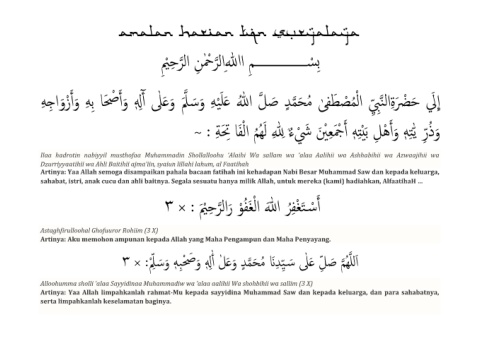 amalan harian lion suryalaya
بِسْــــــــــــــمِ اللهِالرَّحْمٰنِ الرَّحِيْمِ
إِلَي حَضْرَةِالنَّبِيِّ الْمُصْطَفىٰ مُحَمَّدٍ صَلَّ اللهُ عَلَيْهِ وَسَلَّمَ وَعَلٰى آلِهٖ وَأَصْحَا بِهِ وَأَزْوَاجِهِ
وَذُرِّ يَّتِهِ وَأَهْلِ بَيْتِهِ أَجْمَعِيْنَ شَيْءٌ لِلهِ لَهُمُ الْفَا تِحَةَ : ~
Ilaa hadrotin nabiyyil musthofaa Muhammadin Shollalloohu 'Alaihi Wa sallam wa 'alaa Aalihii wa Ashhabihii wa Azwaajihii wa
Dzurriyyatihii wa Ahli Baitihii ajma'iin, syaiun lillahi lahum, al Faatihah
Artinya: Yaa Allah semoga disampaikan pahala bacaan fatihah ini kehadapan Nabi Besar Muhammad Saw dan kepada keluarga,
sahabat, istri, anak cucu dan ahli baitnya. Segala sesuatu hanya milik Allah, untuk mereka (kami) hadiahkan, AlfaatihaH ...
أَسْتَغْفِرُ اللهَ الْغَفُوْ رَالرَّحِيْمَ : × ٣
Astaghfirulloohal Ghofuuror Rohiim (3 X)
Artinya: Aku memohon ampunan kepada Allah yang Maha Pengampun dan Maha Penyayang.
اَللّٰهُمَّ صَلِّ عَلٰى سَيِّدِنَا مُحَمَّدٍ وَعَلٰ اٰلِهٖ وَصَحْبِهٖ وَسَلِّمْ: × ٣
Alloohumma sholli 'alaa Sayyidinaa Muhammadiw wa 'alaa aalihii Wa shohbihii wa sallim (3 X)
Artinya: Yaa Allah limpahkanlah rahmat-Mu kepada sayyidina Muhammad Saw dan kepada keluarga, dan para sahabatnya,
serta limpahkanlah keselamatan baginya.